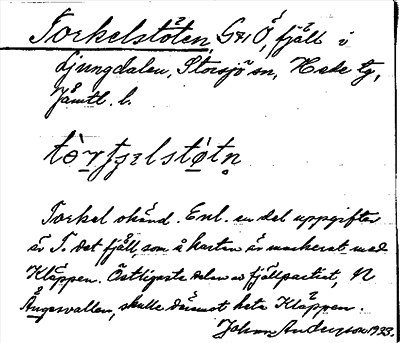 Torkelstöten, G41 Ö, fjäll i
Ljungdalen, Storsjö sn, Hede tg,
Jämtl. l.
tòrfsɛlstö́tn̥
Torkel okänd. Enl. en del uppgifter
är T. det fjäll, som å kartan är markerat med
Kläppen. Östligaste delen av fjällpartiet, N
Ångervallen, skulle däremot heta Kläppen.
Johan Andersson 1933.